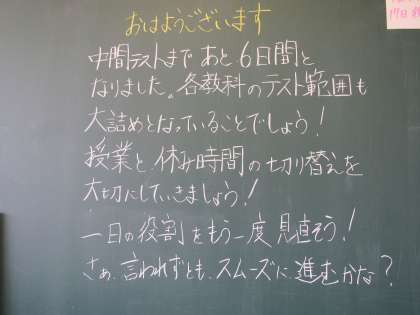 おはようございます
中間テストまであと6日間と
なりました。各教科のテスト範囲も
大詰めとなっていることでしょう!
授業と、休み時間の切り替えを
大切にしていきましょう!
一日の役割をもう一度見直そう!
さぁ、言われずとも、スムーズに進むかな?